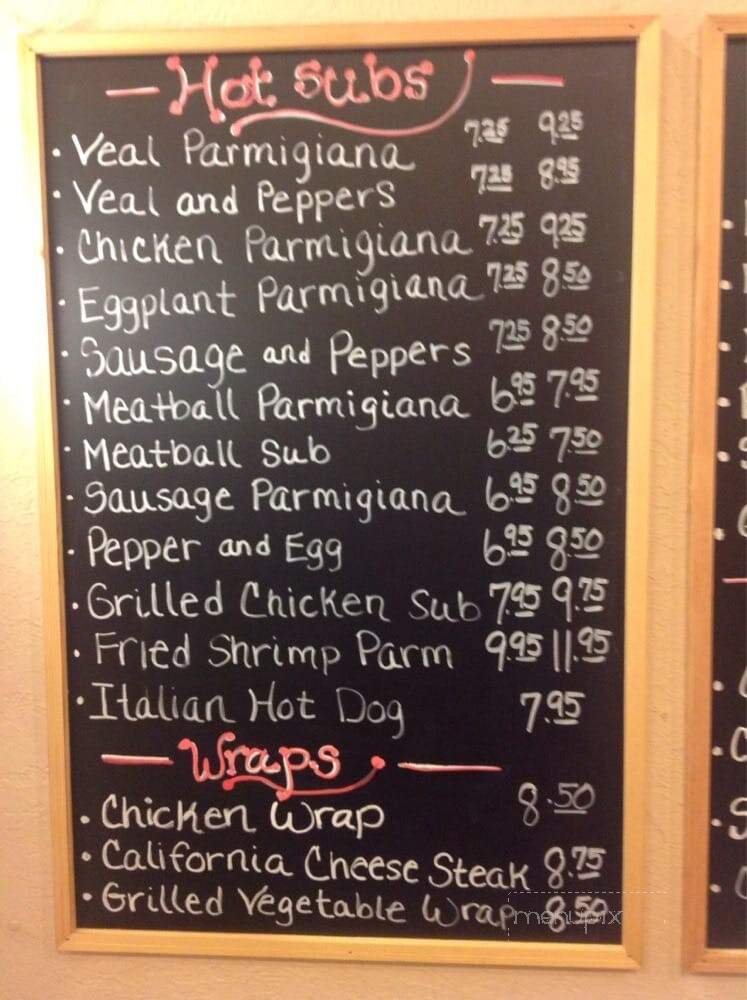 Hot Subs
· Veal Parmigiana 7.25 9.25
· Veal and Peppers 7.25 8.95
· Chicken Parmigiana 7.25 9.25
· Eggplant Parmigiana 7.25 8.50
· Sausage and Peppers 7.25 8.50
· Meatball Parmigiana 6.95 7.95
· Meatball Sub 6.25 7.50
· Sausage Parmigiana 6.95 8.50
· Pepper and Egg 6.95 8.50
· Grilled Chicken Sub 7.95 9.75
· Fried Shrimp Parm 9.95 11.95
· Italian Hot Dog 7.95
Wraps
· Chicken Wrap 8.50
· California Cheese Steak 8.75
· Grilled Vegetable Wrap 8.50
menupix